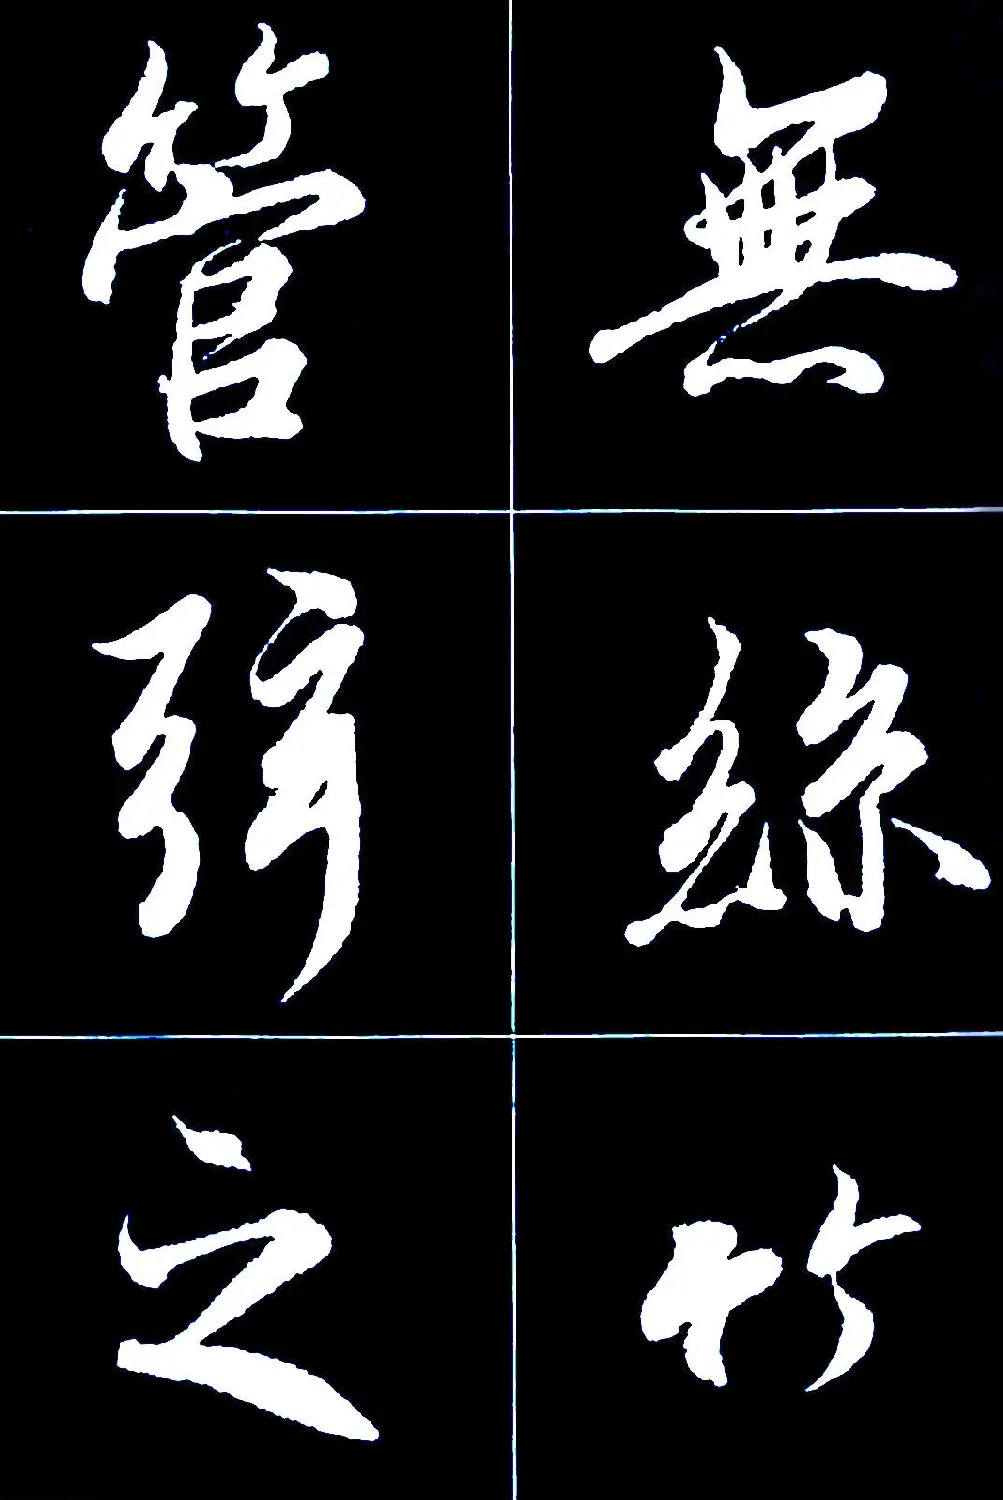 無絲竹
管弦之